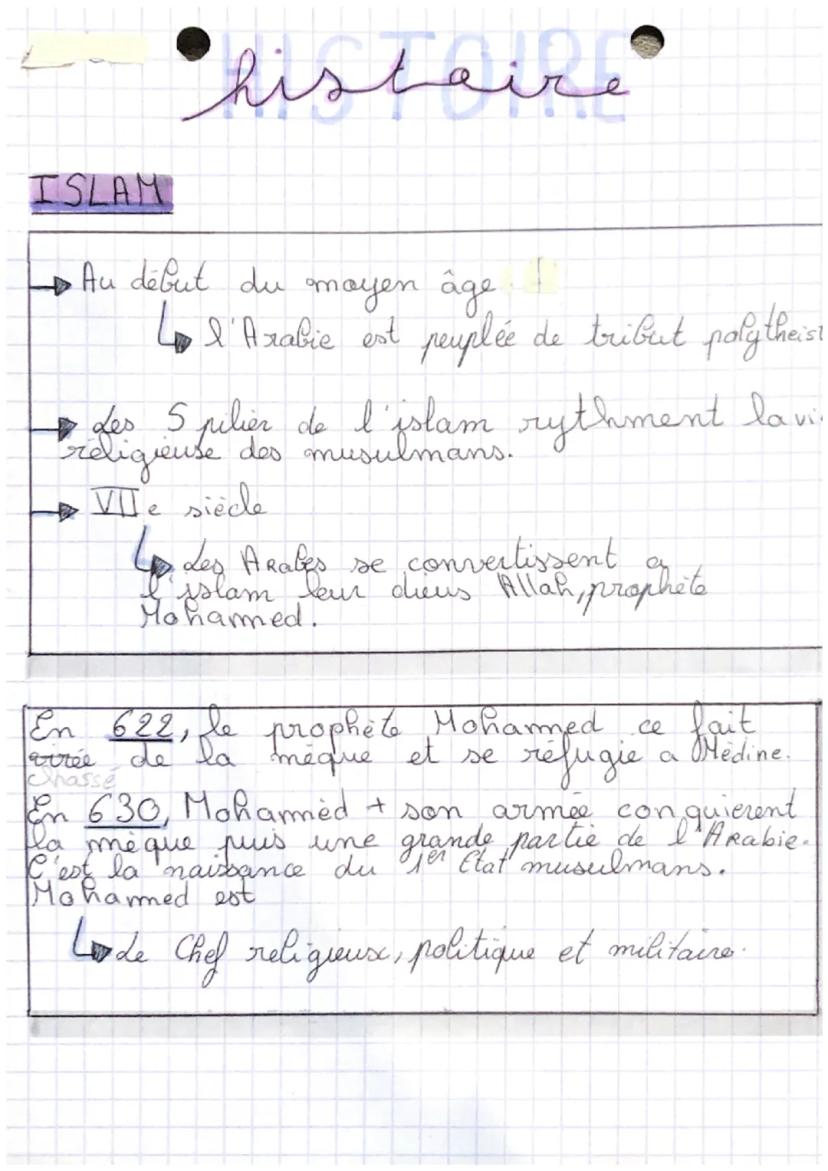 HISTOIRE
histoire
ISLAM
→ Au début du moyen âge
↳ l'Arabie est peuplée de tribut polytheist
→ Les 5 pilier de l'islam rythment la vi
réligieuse des musulmans.
→ VII e siècle
↳ Les Arabes se convertissent a
l'islam leur dieus Allah, prophète
Mohammed.
En 622, le prophète Mohammed ce fait
virée de la mèque et se réfugie a Médine.
chassé
En 630, Mohammèd + son armée conquierent
la mèque puis une grande partie de l'Arabie.
C'est la naissance du 1er Etat musulmans.
Mohammed est
↳ Le Chef religieux, politique et militaire.